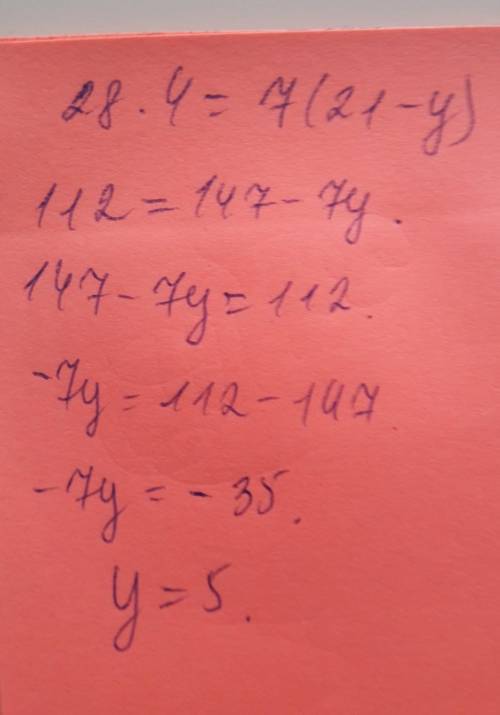 28 · 4 = 7(21 - y)
112 = 147 - 7y.
147 - 7y = 112.
-7y = 112 - 147
-7y = - 35.
y = 5.